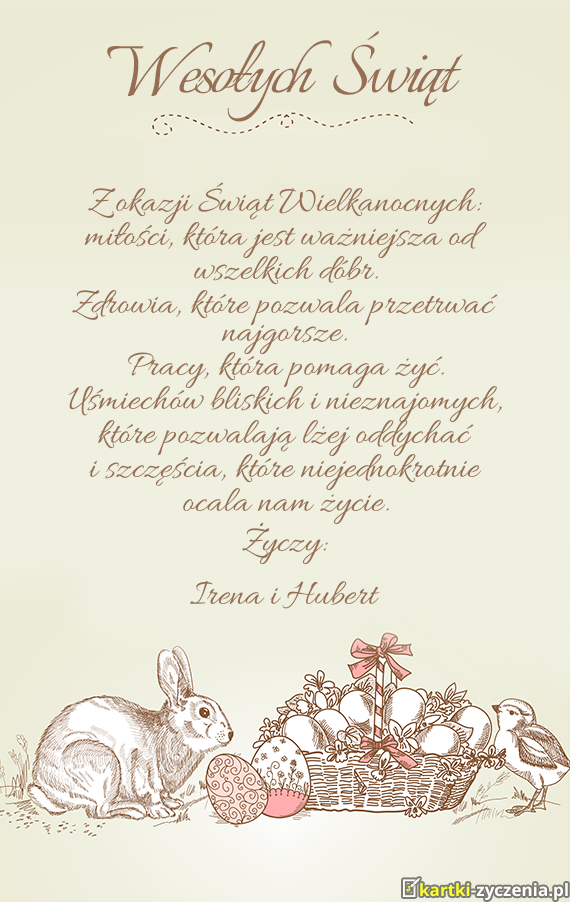 Wesołych Świąt
Z okazji Świąt Wielkanocnych:
miłości, która jest ważniejsza od
wszelkich dóbr.
Zdrowia, które pozwala przetrwać
najgorsze.
Pracy, która pomaga żyć.
Uśmiechów bliskich i nieznajomych,
które pozwalają lżej oddychać
i szczęścia, które niejednokrotnie
ocala nam życie.
Życzy:
Irena i Hubert
kartki-zyczenia.pl